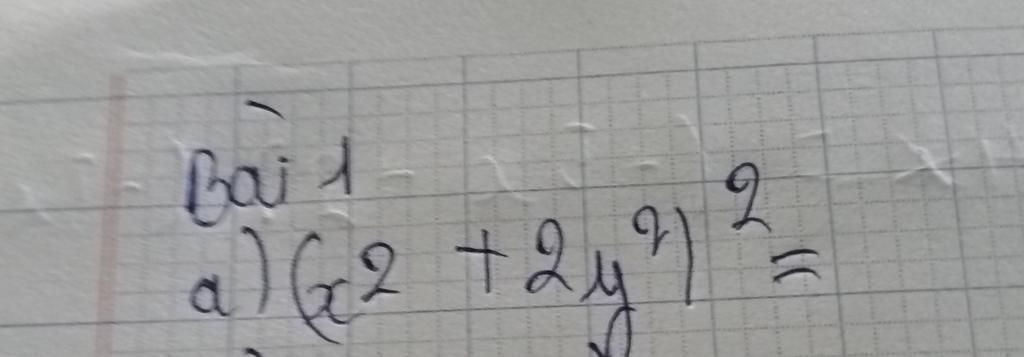 Bài 1
a) (x2 + 2y²)² =